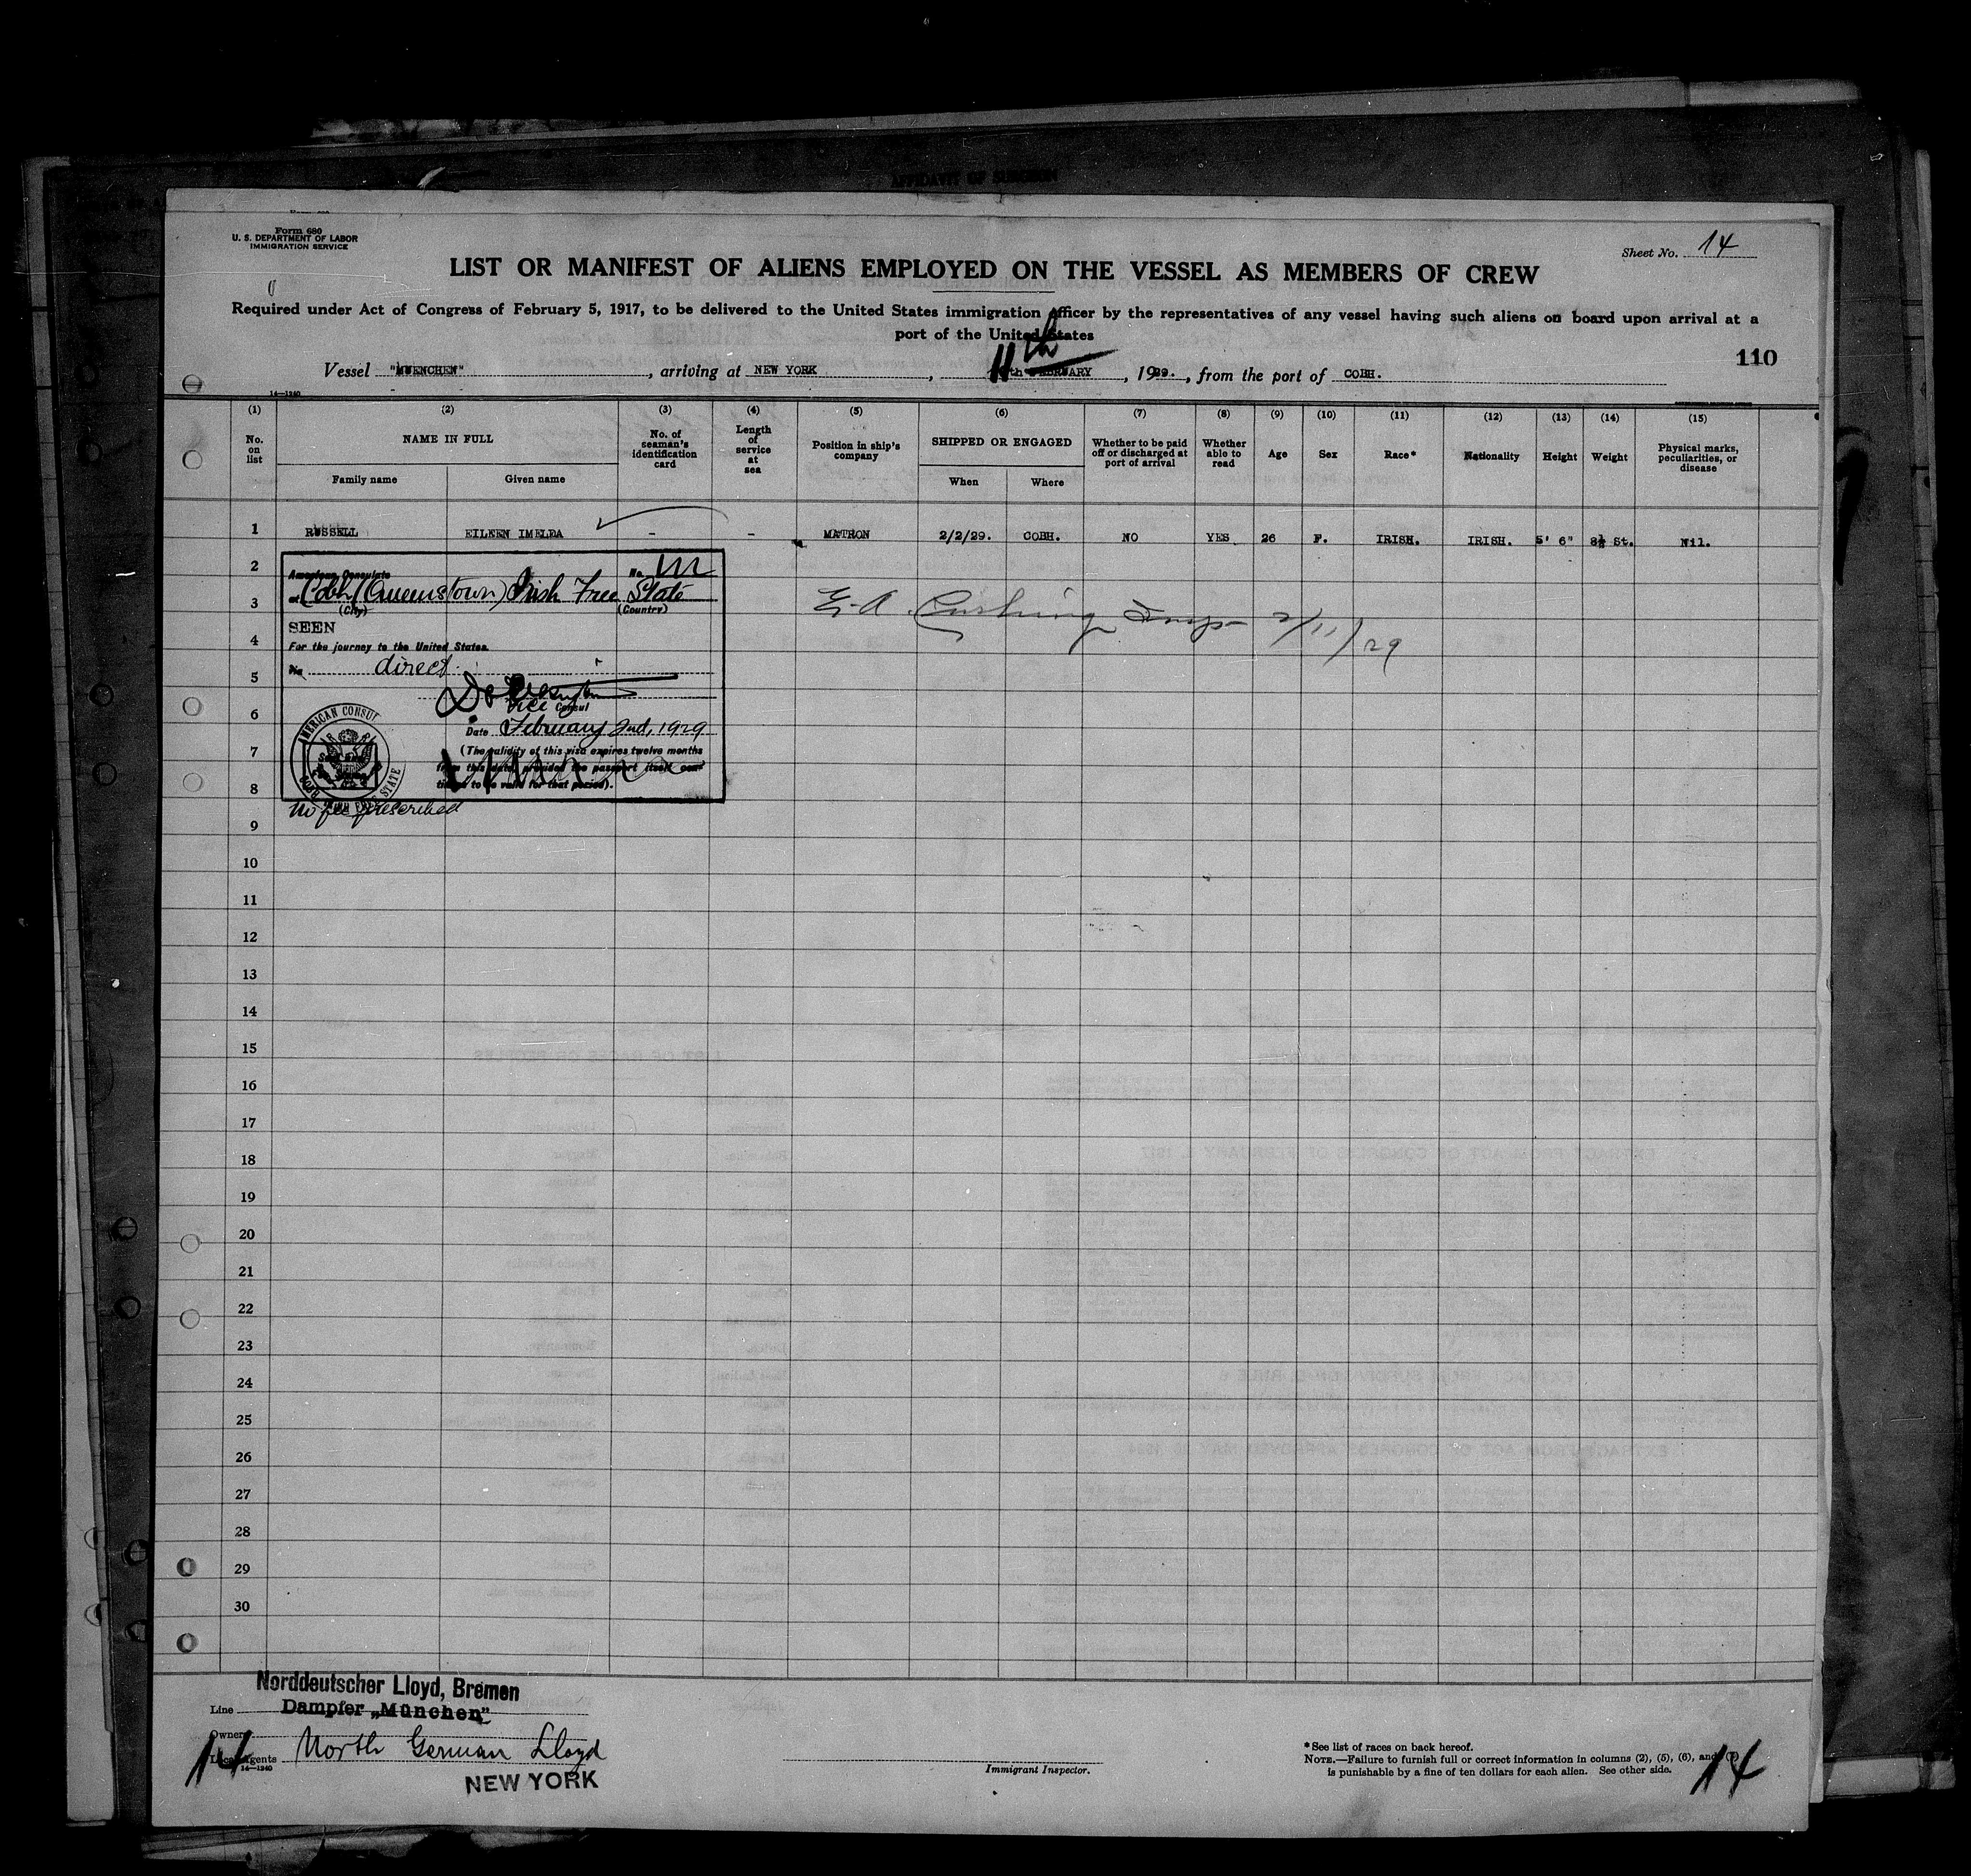 AFFIDAVIT OF SURGEON
Form 680
U. S. DEPARTMENT OF LABOR
IMMIGRATION SERVICE
Sheet No. 14
LIST OR MANIFEST OF ALIENS EMPLOYED ON THE VESSEL AS MEMBERS OF CREW
Required under Act of Congress of February 5, 1917, to be delivered to the United States immigration officer by the representatives of any vessel having such aliens on board upon arrival at a
port of the United States
110
Vessel "MUENCHEN", arriving at NEW YORK, 11th FEBRUARY, 1929., from the port of COBH.
14—1240
(1) (2) (3) (4) (5) (6) (7) (8) (9) (10) (11) (12) (13) (14) (15)
No. on list NAME IN FULL No. of seaman's identification card Length of service at sea Position in ship's company SHIPPED OR ENGAGED Whether to be paid off or discharged at port of arrival Whether able to read Age Sex Race* Nationality Height Weight Physical marks, peculiarities, or disease
Family name Given name When Where
1 RUSSELL EILEEN IMELDA - - MATRON 2/2/29. COBH. NO YES 26 F. IRISH. IRISH. 5' 6" 8½ St. Nil.
2
American Consulate No.
3
at Cobh (Queenstown) Irish Free State
(City) (Country)
E. A. Cushing Insp 2/11/29
SEEN
4
For the journey to the United States.
Via direct
5
Vice Consul
6
Date February 2nd, 1929
7
(The validity of this visa expires twelve months
from this date, provided the passport itself con-
tinues to be valid for that period).
AMERICAN CONSUL
COBH IRISH FREE STATE
8
No fee prescribed
9
10
11
12
13
14
15
16
17
18
19
20
21
22
23
24
25
26
27
28
29
30
Norddeutscher Lloyd, Bremen
Line Dampfer „München"
Owners
Local Agents North German Lloyd
14—1240
NEW YORK
14
Immigrant Inspector.
*See list of races on back hereof.
NOTE.—Failure to furnish full or correct information in columns (2), (5), (6), and (7)
is punishable by a fine of ten dollars for each alien. See other side.
14